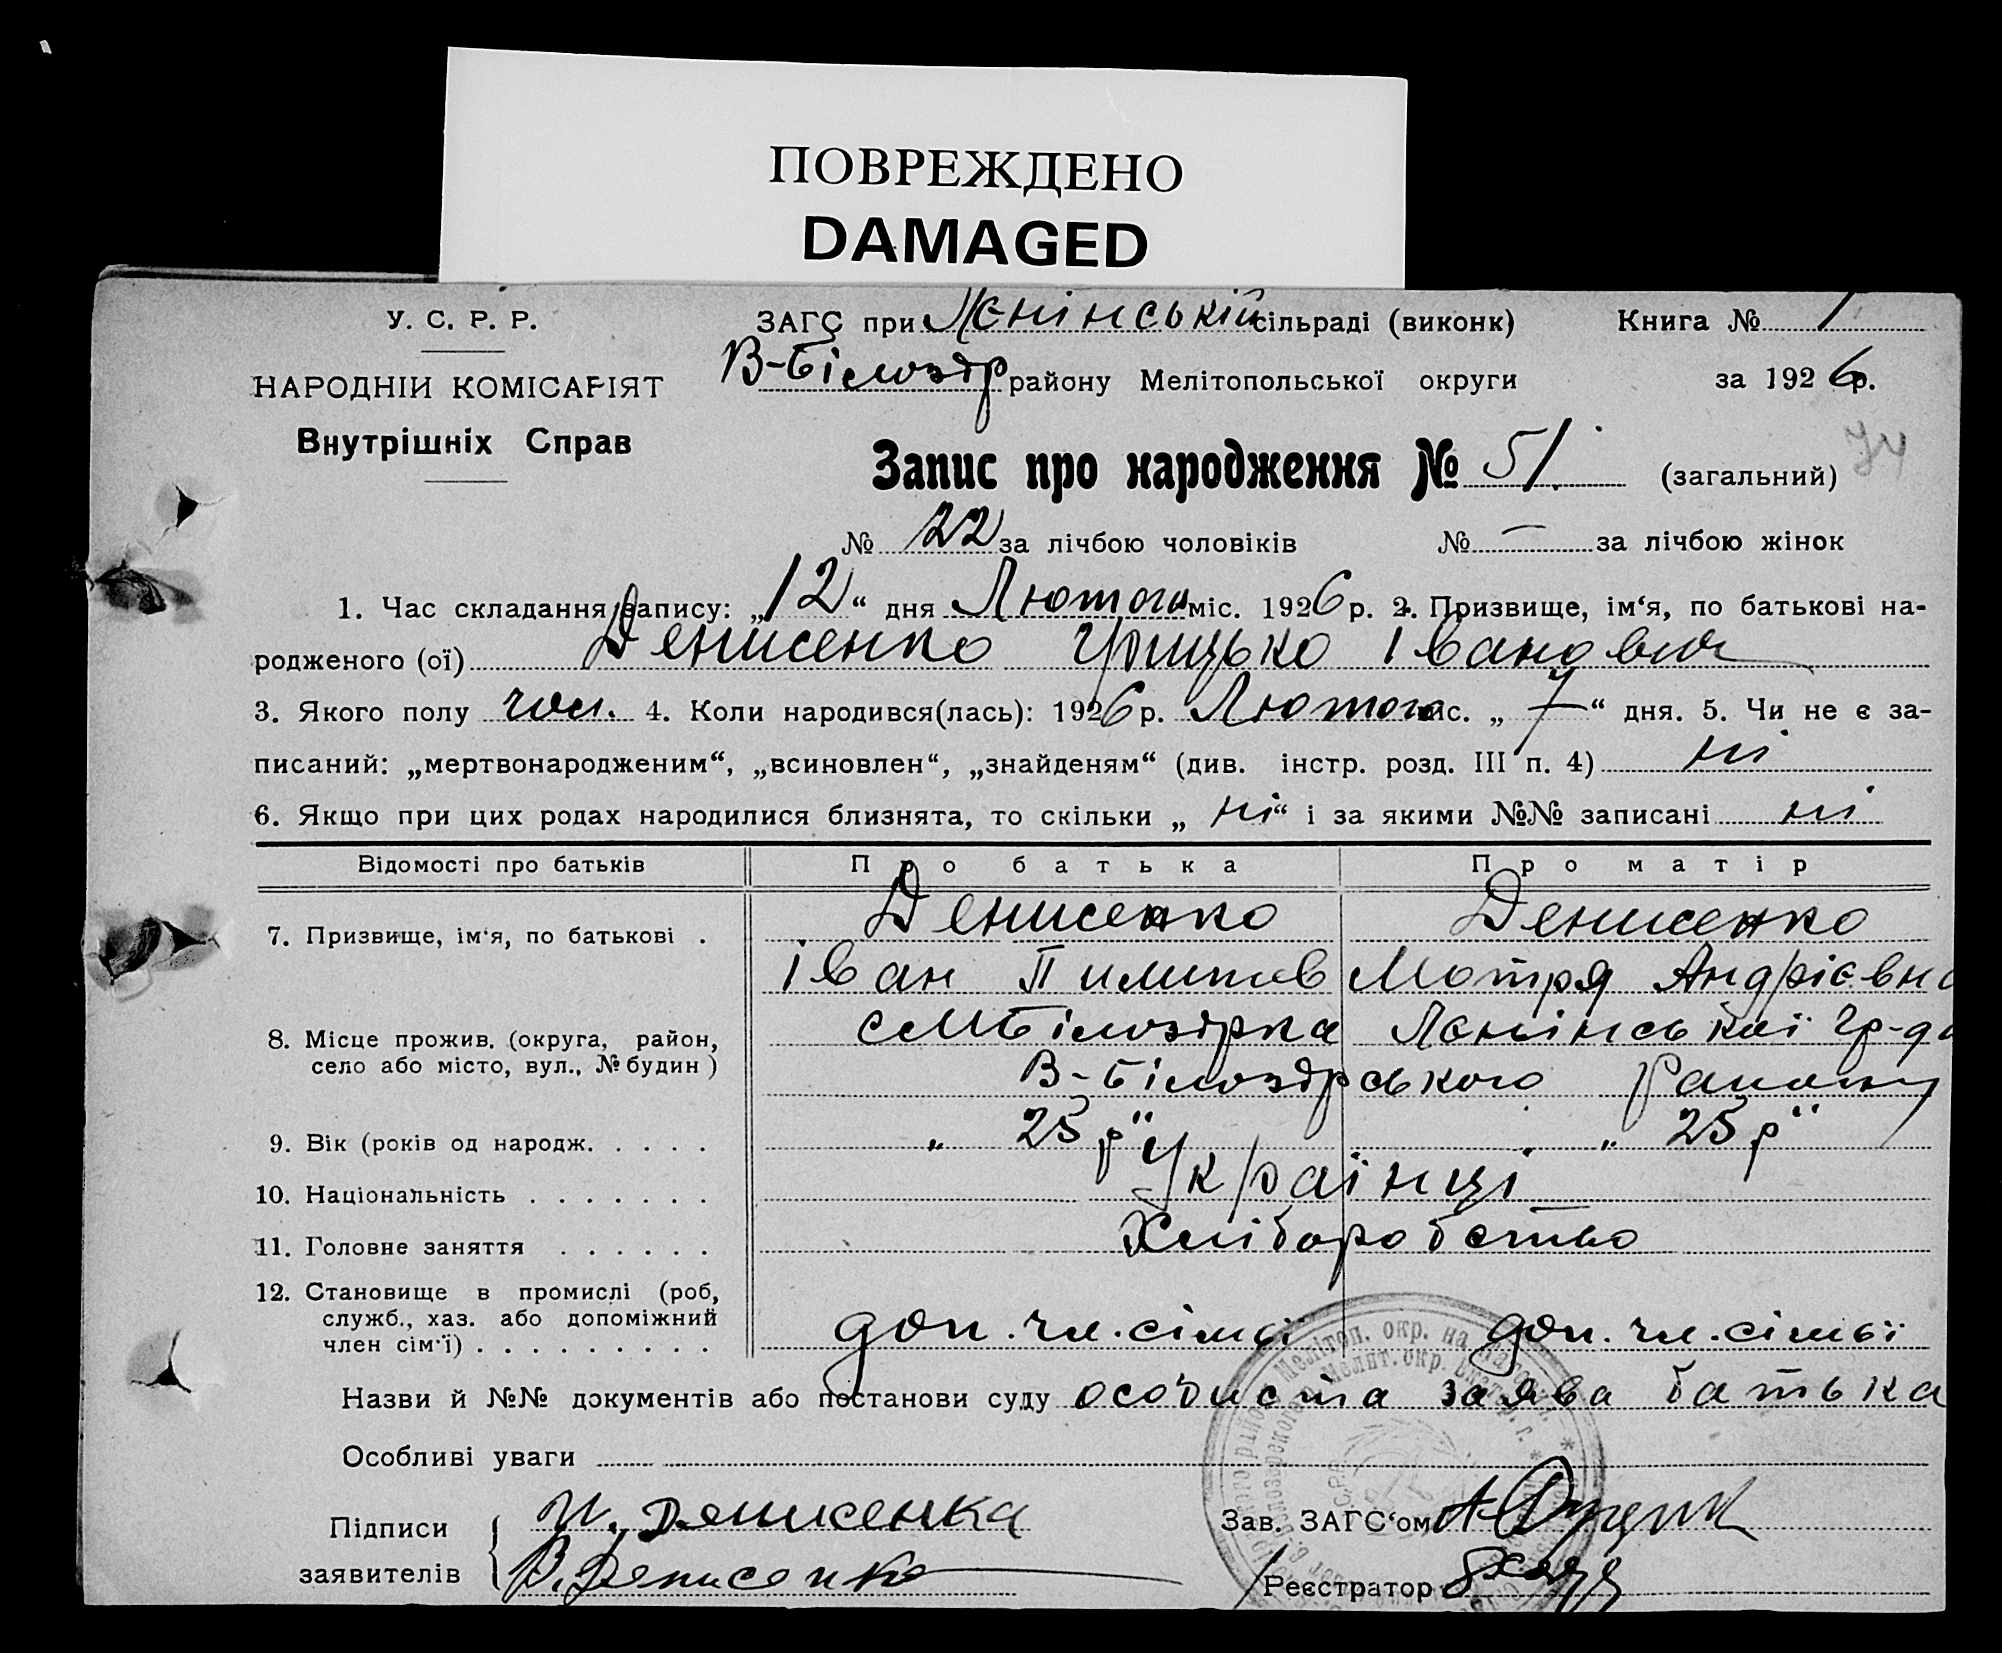 ПОВРЕЖДЕНО
DAMAGED
У. С. Р. Р.
ЗАГС при Лєнінській сільраді (виконк) Книга № 1
НАРОДНІЙ КОМІСАРІЯТ
В-Білозір району Мелітопольської округи за 1926 р.
Внутрішніх Справ
Запис про народження № 51. (загальний) 74
№ 22 за лічбою чоловіків № — за лічбою жінок
1. Час складання запису: „12“ дня Лютого міс. 1926 р. 2. Призвище, ім‘я, по батькові на-
родженого (ої) Денисенко Грицько Іванович
3. Якого полу чол. 4. Коли народився(лась): 1926 р. Лютого міс. „7“ дня. 5. Чи не є за-
писаний: „мертвонародженим“, „всиновлен“, „знайденям“ (див. інстр. розд. III п. 4) ні
6. Якщо при цих родах народилися близнята, то скільки „ні“ і за якими №№ записані ні
Відомості про батьків Про батька Про матір
Денисенко Денисенко
7. Призвище, ім‘я, по батькові .
Іван Пилипов Мотря Андрієвна
8. Місце прожив. (округа, район, село або місто, вул., № будин) Білозірка Лєнінської гр-да
В-Білозірського району
9. Вік (років од народж. . . . . „ 25 р“ „ 25 р“
10. Національність . . . . . . . Українці
11. Головне заняття . . . . . . Хліборобство
12. Становище в промислі (роб,
служб., хаз. або допоміжний
член сім‘ї) . . . . . . . . . доп. чл. сімьї доп. чл. сімьї
Назви й №№ документів або постанови суду особиста заява батька
Особливі уваги
Підписи И. Денисенка
Зав. ЗАГС‘ом
заявителів В. Денисенко
Реєстратор